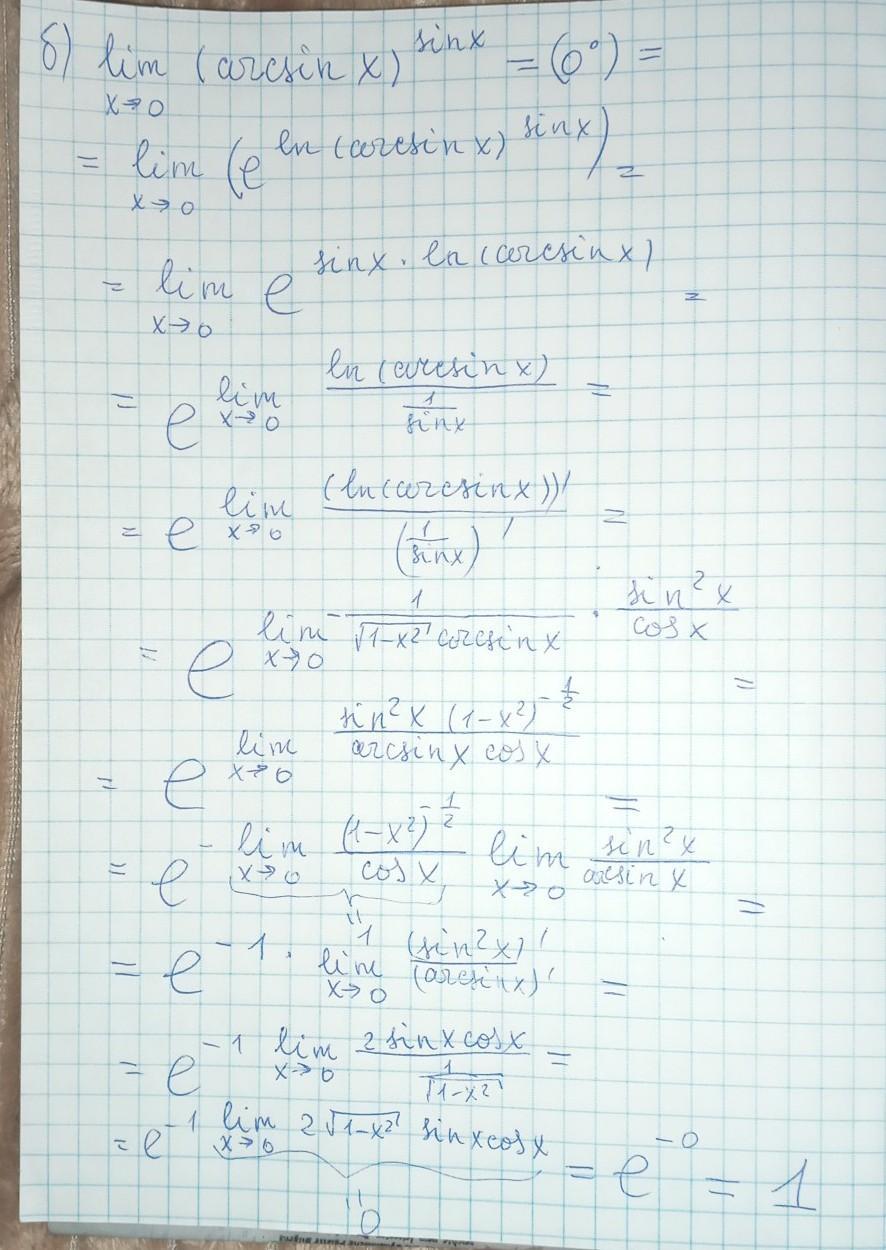 б) lim x→0 (arcsin x)^sinx = (0⁰) =
= lim x→0 (e^ln(arcsin x)^sinx) =
= lim x→0 e^sinx · ln(arcsin x) =
= e^lim x→0 ln(arcsin x) / (1/sinx) =
= e^lim x→0 (ln(arcsin x))' / (1/sinx)' =
= e^lim x→0 - 1/(√(1-x²) arcsin x) · sin²x/cosx =
= e^lim x→0 sin²x (1-x²)^(-1/2) / (arcsin x cosx) =
= e^- lim x→0 (1-x²)^(-1/2) / cosx lim x→0 sin²x / arcsin x =
" 1
= e^-1 · lim x→0 (sin²x)' / (arcsin x)' =
= e^-1 lim x→0 2 sinx cosx / (1/√(1-x²)) =
= e^-1 lim x→0 2√(1-x²) sinx cosx = e^-0 = 1
" 0